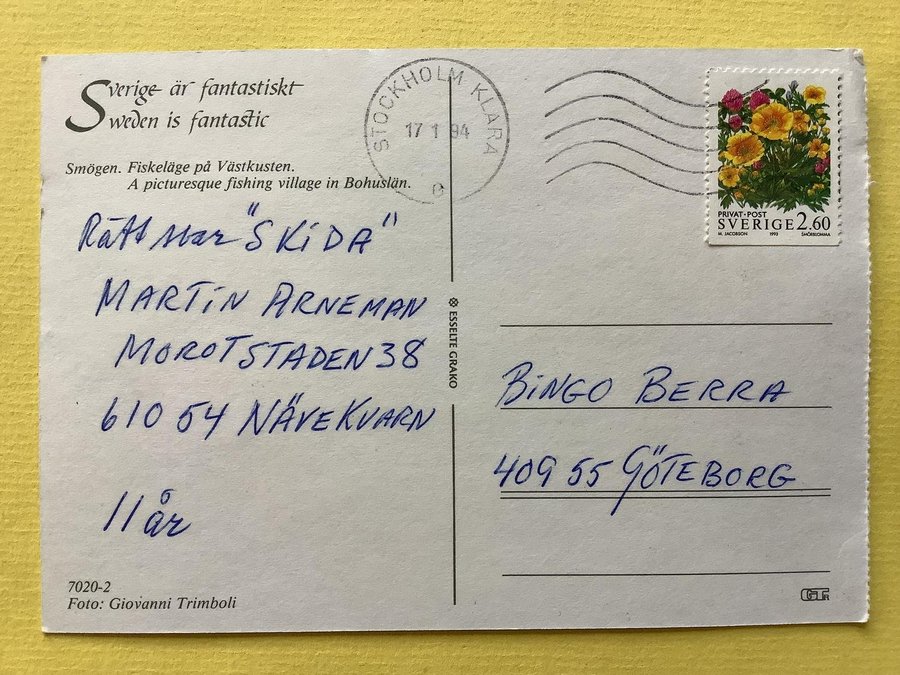 Sverige är fantastiskt
Sweden is fantastic
Smögen. Fiskeläge på Västkusten.
A picturesque fishing village in Bohuslän.
Rätt svar "SKiDA"
MARTiN ARNEMAN
MOROTSTADEN 38
610 54 NÄVEKVARN
11 år
7020-2
Foto: Giovanni Trimboli
ESSELTE GRAKO
STOCKHOLM KLARA
17 1 94
D
PRIVAT•POST
SVERIGE 2.60
M. JACOBSON 1993 SMÖRBLOMMA
BiNGO BERRA
409 55 GÖTEBORG